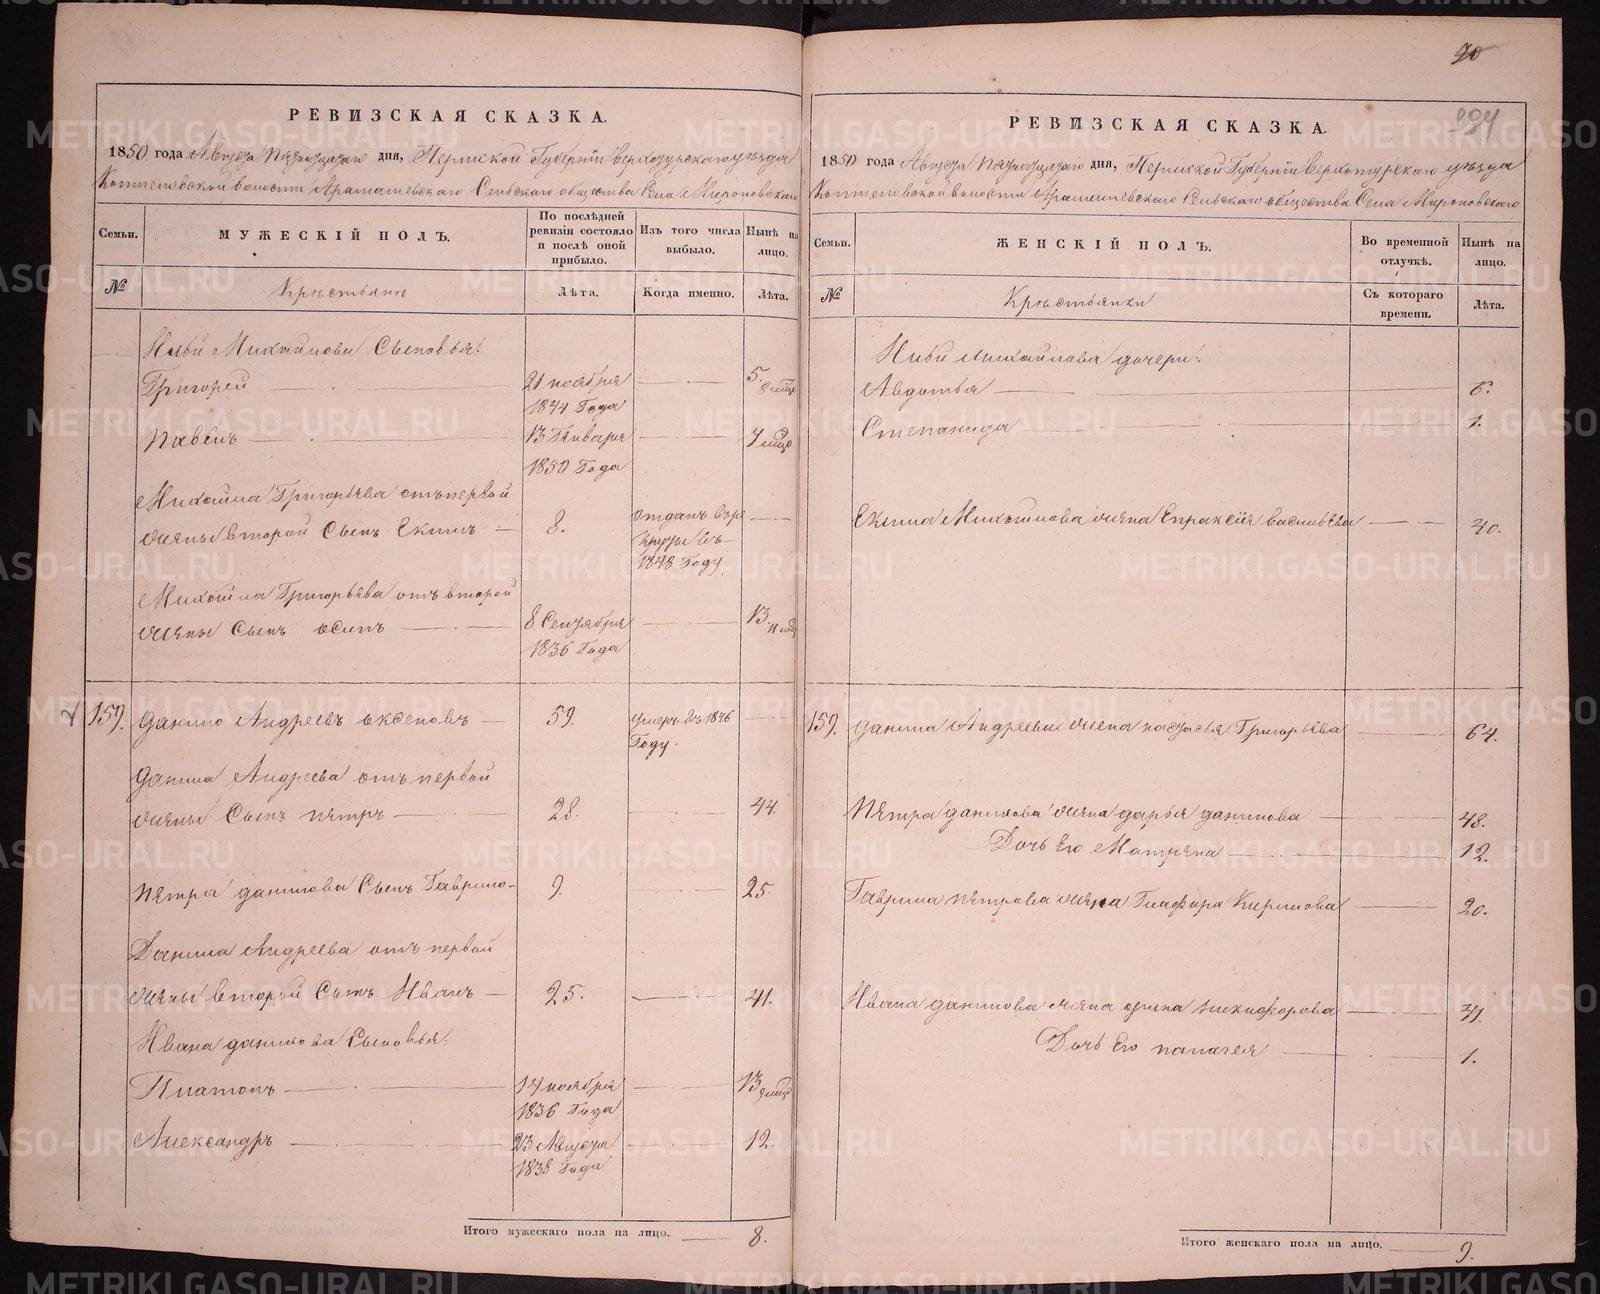 70
994
РЕВИЗСКАЯ СКАЗКА.
1850 года Августа пятнадцатаго дня, Пермской Губернiи Верхотурскаго уѣзда
волости Арамашевскаго Сельскаго общества Села Мироновскаго
Семьи.
МУЖЕСКIЙ ПОЛЪ.
По послѣдней ревизiи состояло и послѣ оной прибыло.
Изъ того числа выбыло.
Нынѣ на лицо.
№
Крестьянъ
Лѣта.
Когда именно.
Лѣта.
Михайлова Сыновья:
Григорей 21 ноября 1844 Года 5.
Павелъ 13 Генваря 1850 Года 7 мѣсц
Михайла Григорьева отъ первой
жены второй Сынъ Екимъ 8. отданъ въ рекруты въ 1848 Году
Михайла Григорьева отъ второй
жены Сынъ осипъ 8 Сентября 1836 Года 13.
159. данило Андреевъ аксеновъ 59. умеръ въ 1846 Году.
данила Андреева отъ первой
жены Сынъ петръ 28. 44.
петра данилова Сынъ Гаврило 9. 25.
Данила Андреева отъ первой
жены второй Сынъ Иванъ 25. 41.
Ивана данилова Сыновья:
Платонъ 14 ноября 1836 Года 13 9 мѣсц
Александръ 23 Августа 1838 Года 12.
Итого мужескаго пола на лицо. 8.
РЕВИЗСКАЯ СКАЗКА.
1850 года Августа пятнадцатаго дня, Пермской Губернiи Верхотурскаго уѣзда
волости Арамашевскаго Сельскаго общества Села Мироновскаго
Семьи.
ЖЕНСКIЙ ПОЛЪ.
Во временной отлучкѣ.
Нынѣ на лицо.
№
Крестьянки
Съ котораго времени.
Лѣта.
Михайлова дочери:
Авдотья 6.
Степанида 1.
Екима Михайлова жена Епраксия васильева 40.
159. данила Андреева жена настасья Григорьева 64.
Петра данилова жена дарья данилова 48.
Дочь его Матрена 12.
Гаврила петрова жена Глафира Кирилова 20.
Ивана данилова жена орина никифорова 41.
Дочь его палагея 1.
Итого женскаго пола на лицо. 9.
METRIKI.GASO-URAL.RU